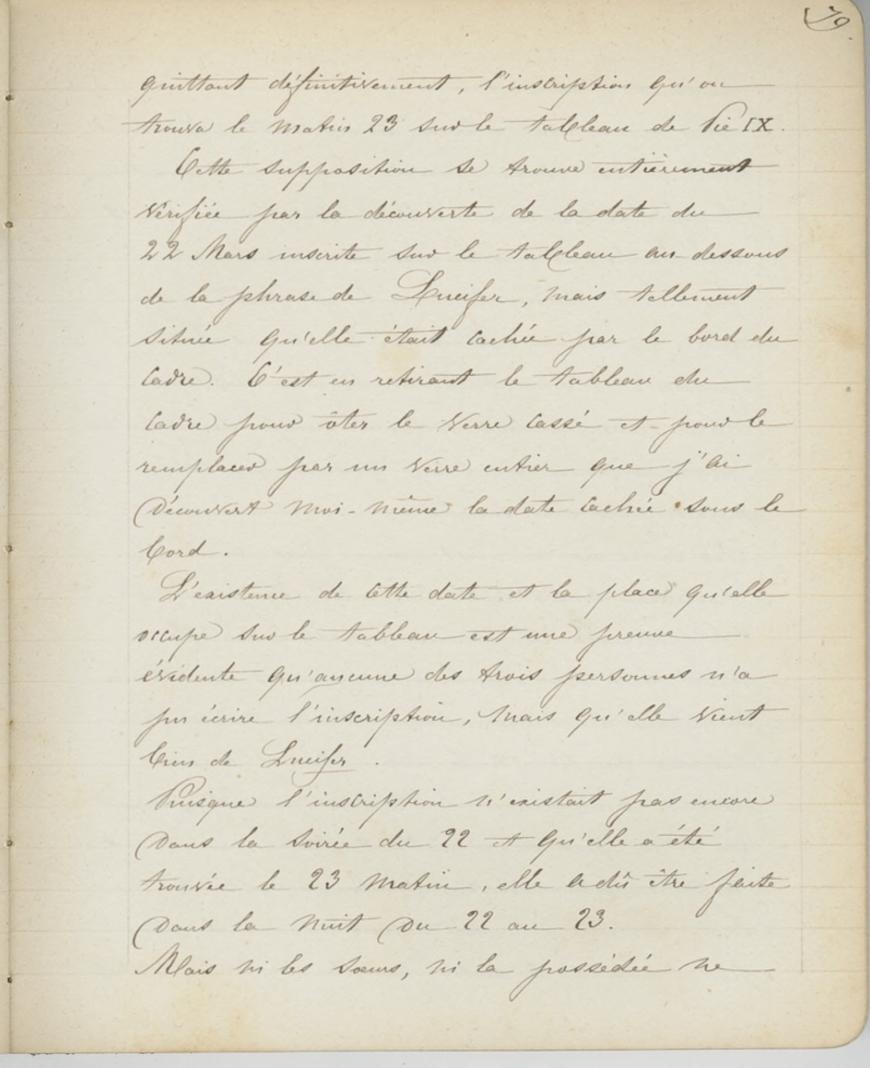 79.
quittant définitivement, l'inscription qu'on
trouva le matin 23 sur le tableau de Pie IX.
Cette supposition se trouve entièrement
vérifiée par la découverte de la date du
22 Mars inscrite sur le tableau au-dessous
de la phrase de Lucifer, mais tellement
située qu'elle était cachée par le bord du
cadre. C'est en retirant le tableau du
cadre pour ôter le verre cassé et pour le
remplacer par un verre entier que j'ai
découvert moi-même la date cachée sous le
bord.
L'existence de cette date et la place qu'elle
occupe sur le tableau est une preuve
évidente qu'aucune des trois personnes n'a
pu écrire l'inscription, mais qu'elle vient
bien de Lucifer.
Puisque l'inscription n'existait pas encore
dans la soirée du 22 et qu'elle a été
trouvée le 23 matin, elle a dû être faite
dans la nuit du 22 au 23.
Mais ni les sœurs, ni la possédée ne